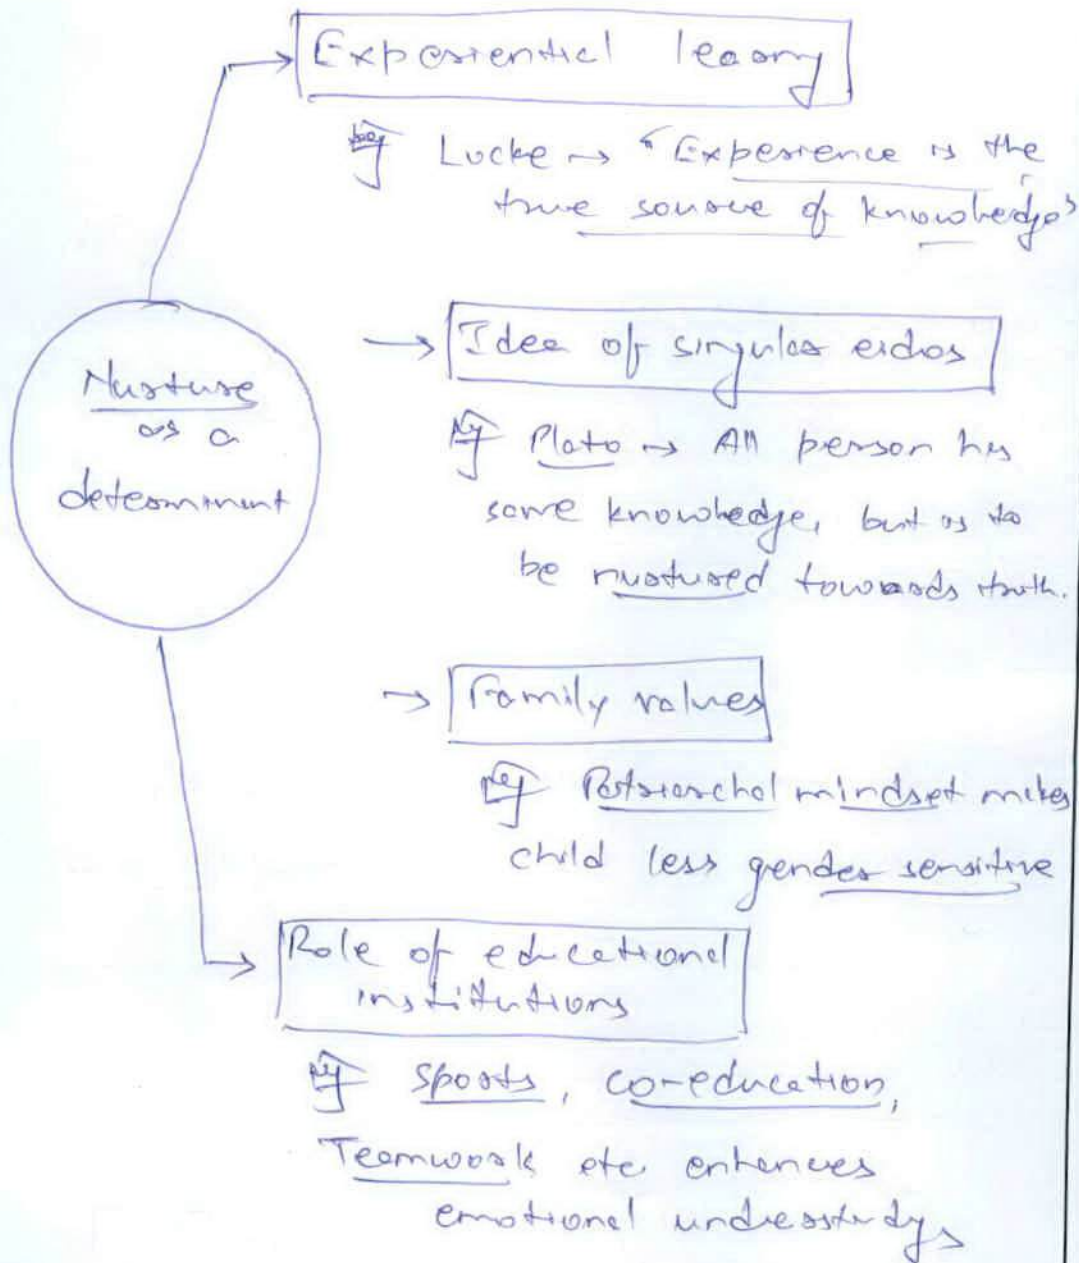 Experiential learning
eg Locke → "Experience is the
true source of knowledge"
Nurture
as a
determinant
→ Idea of singular eidos
eg Plato → All person has
some knowledge, but is to
be nurtured towards truth.
→ Family values
eg Patriarchal mindset makes
child less gender sensitive
Role of educational
institutions
eg sports, co-education,
Teamwork etc enhances
emotional understandings